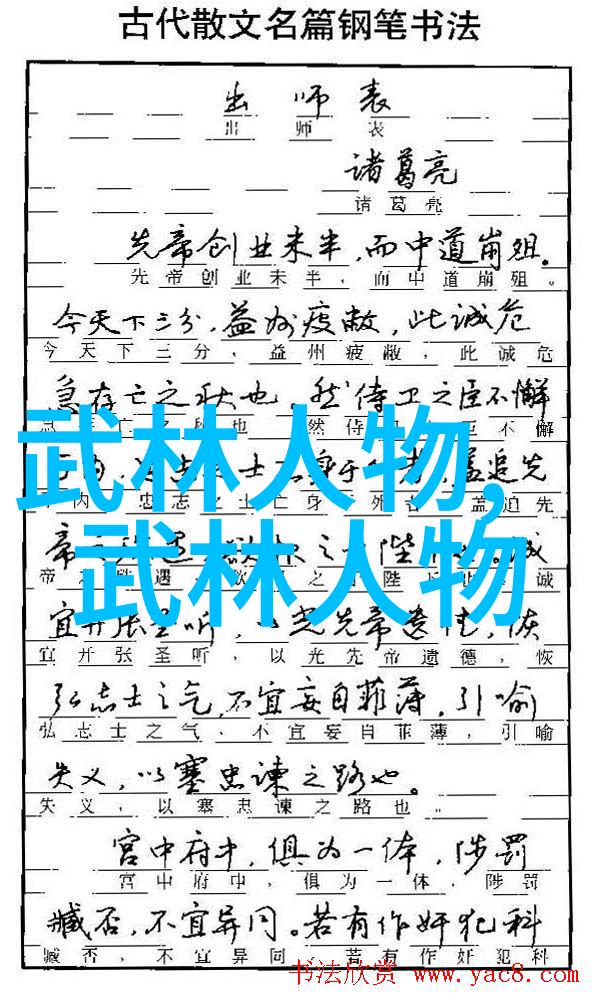 古代散文名篇钢笔书法
出师表
出师表
诸葛亮
诸葛亮
先帝创业未半，而中道崩殂。
先帝创业未半，而中道崩殂。
今天下三分，益州疲敝，此诚危
今天下三分，益州疲敝，此诚危
急存亡之秋也，然侍卫之臣不懈
亡 也 然侍 不懈
武林人物,
志 士 身于 盖追先
内 忠志之士亡身 外者 盖追先
武林人物
帝 遇 之 陛 诚
帝 遇 之 陛 诚
宜开张圣听，以光先帝遗德，恢
宜开张圣听，以光先帝遗德，恢
弘志士之气，不宜妄自菲薄，引喻
弘志士之气，不宜妄自菲薄，引喻
失义，以塞忠谏之路也。
失义，以塞忠谏之路也。
宫中府中，俱为一体，陟罚
宫中府中，俱为一体，陟罚
臧否，不宜异同。若有作奸犯科
臧否，不宜异同。若有作奸犯科
书法欣赏 www.yac8.com